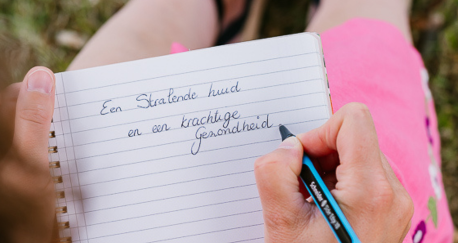 Een Stralende huid
en een krachtige
Gezondheid
Schneider